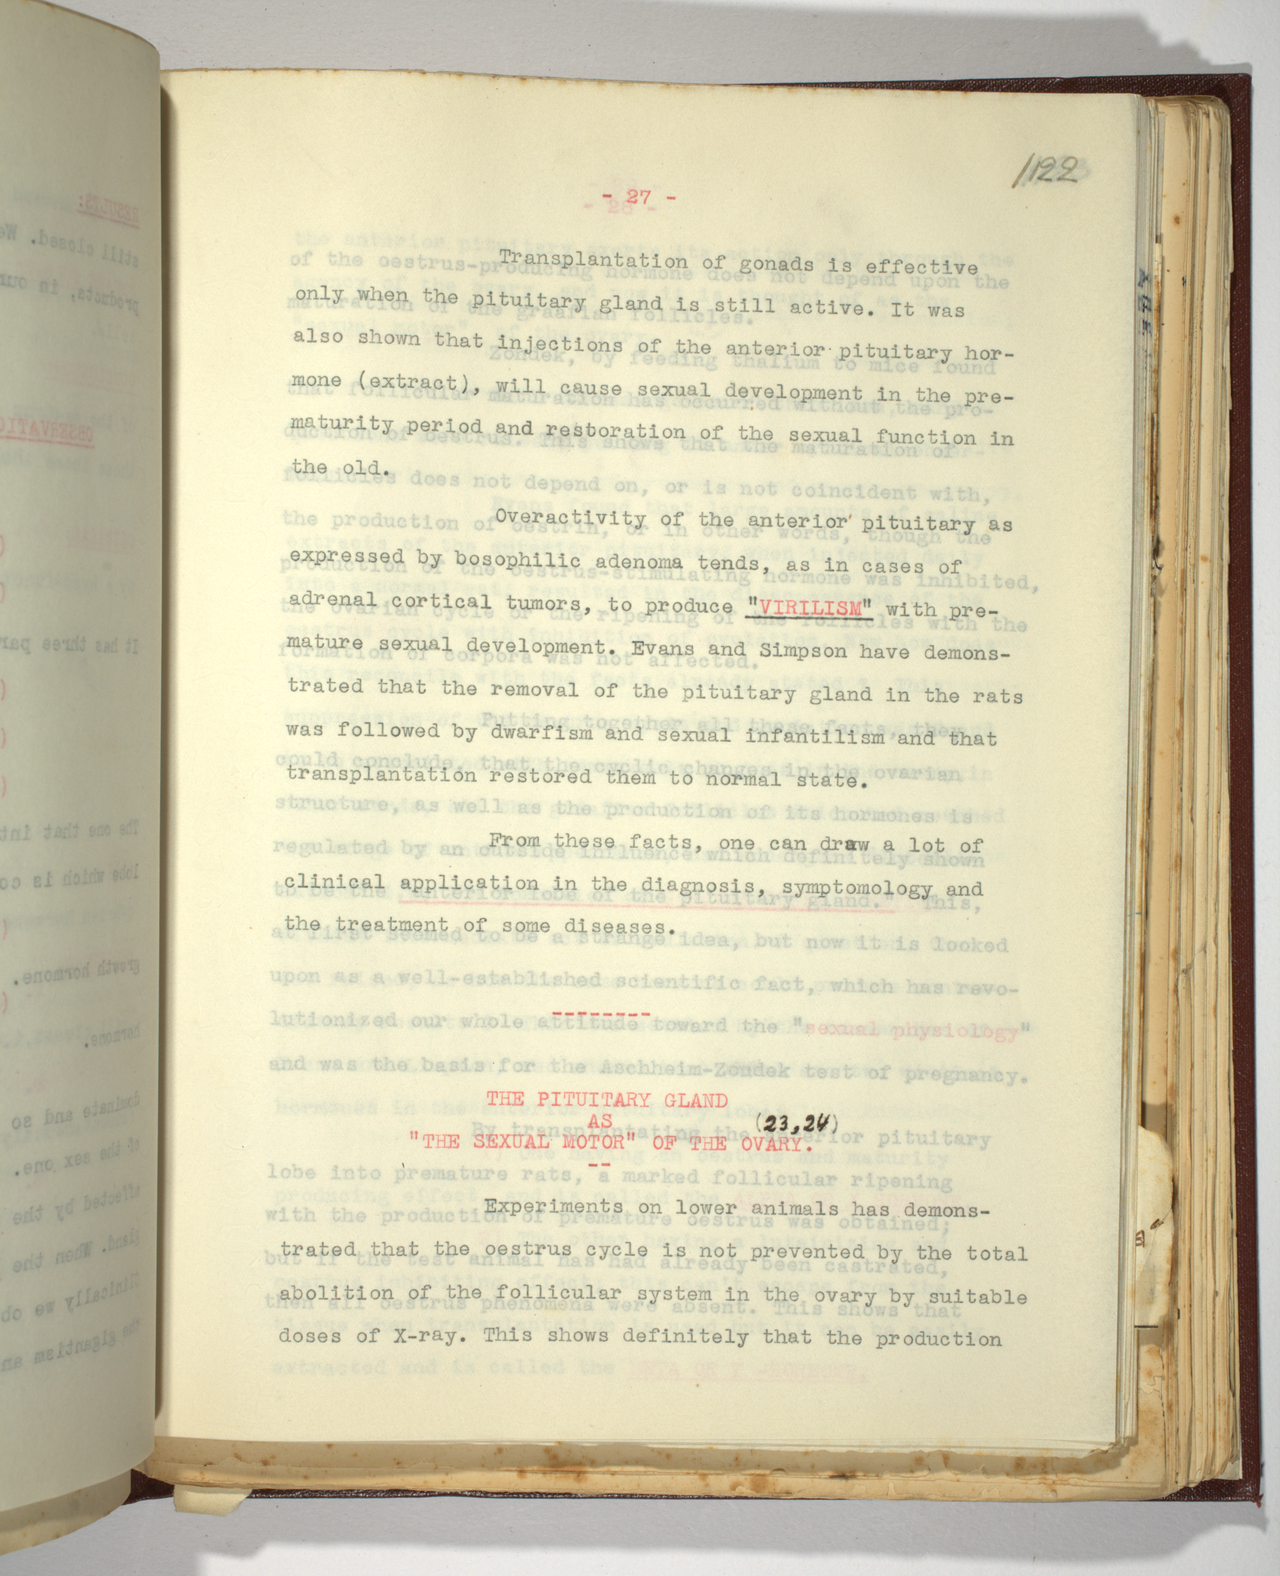 1122
- 27 -
Transplantation of gonads is effective
only when the pituitary gland is still active. It was
also shown that injections of the anterior pituitary hor-
mone (extract), will cause sexual development in the pre-
maturity period and restoration of the sexual function in
the old.
Overactivity of the anterior pituitary as
expressed by bosophilic adenoma tends, as in cases of
adrenal cortical tumors, to produce "VIRILISM" with pre-
mature sexual development. Evans and Simpson have demons-
trated that the removal of the pituitary gland in the rats
was followed by dwarfism and sexual infantilism and that
transplantation restored them to normal state.
From these facts, one can draw a lot of
clinical application in the diagnosis, symptomology and
the treatment of some diseases.
--------
THE PITUITARY GLAND
AS (23,24)
"THE SEXUAL MOTOR" OF THE OVARY.
--
Experiments on lower animals has demons-
trated that the oestrus cycle is not prevented by the total
abolition of the follicular system in the ovary by suitable
doses of X-ray. This shows definitely that the production